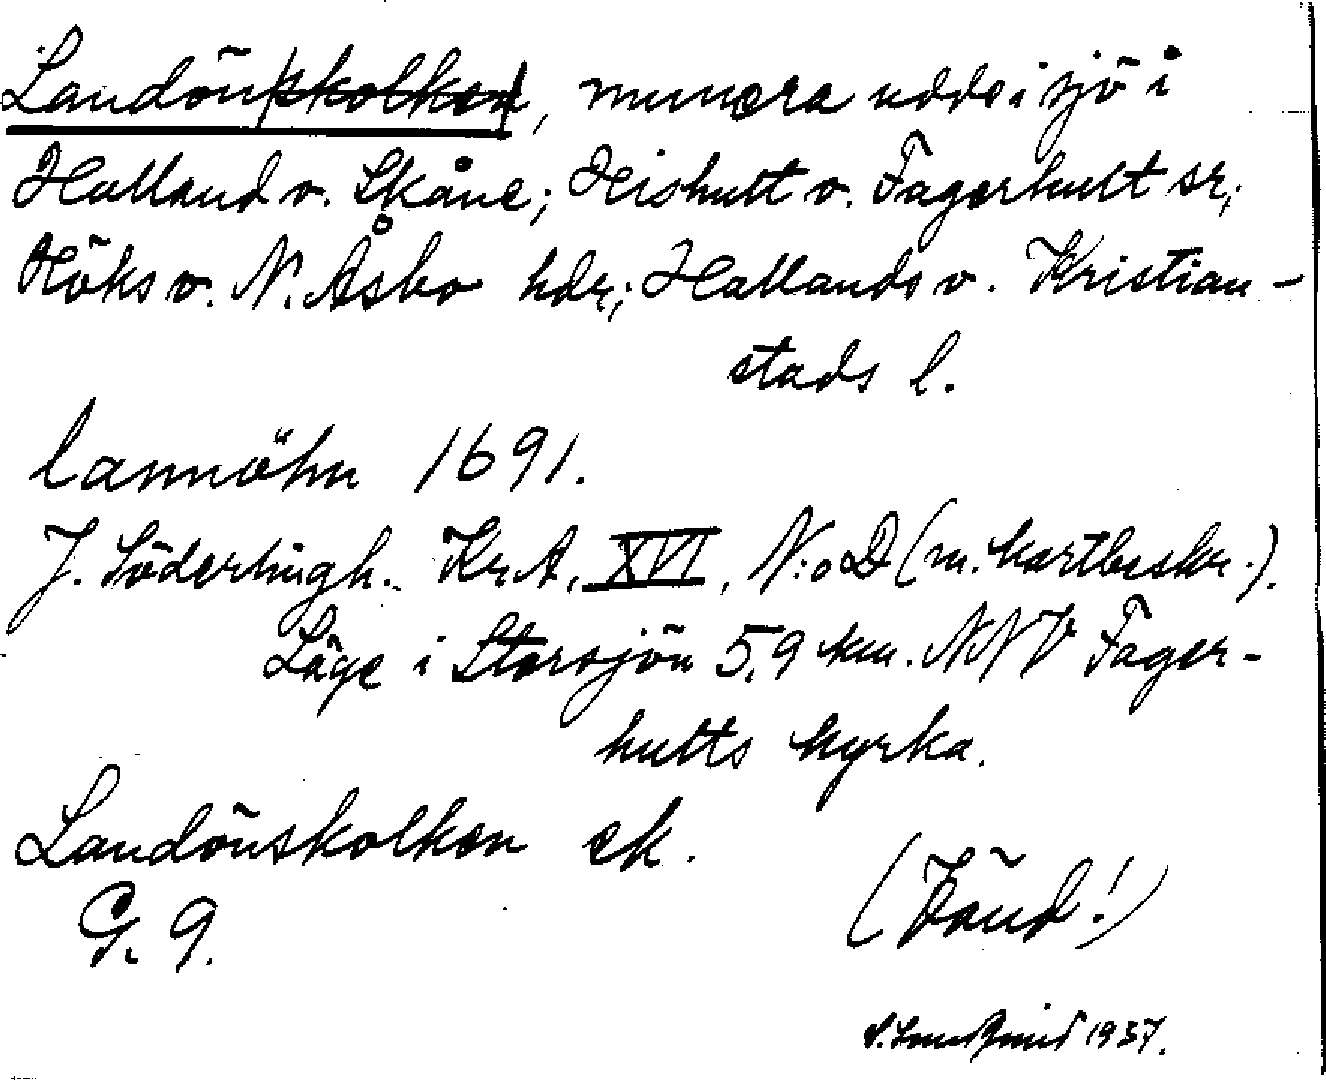 Landön skolken, numera udde i sjö i
Halland o. Skåne; Hishult o. Fagerhult sr;
Höks o. N. Åsbo hdr; Hallands o. Kristian-
stads l.
lannöhn 1691.
J. Söderlingh. Kr.A. XVI, N:o D (m. kartbeskr.).
Läge i Storsjön 5,9 km. NNV Fager-
hults kyrka.
Landönskolken ek.
G. 9.
(Vänd!)
1937.